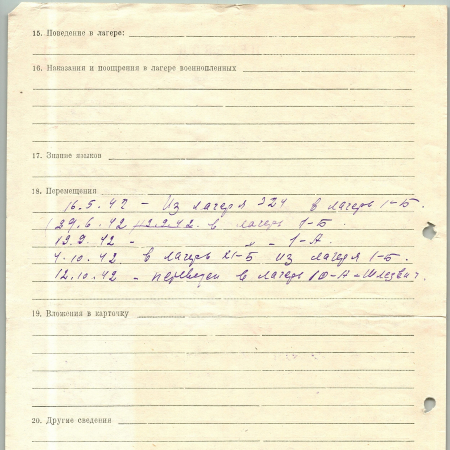 15. Поведение в лагере:
16. Наказания и поощрения в лагере военнопленных
17. Знание языков
18. Перемещения
16.5.42 – Из лагеря 324 в лагерь 1-Б.
29.6.42 в лагерь 1-Б.
13.9.42 – „ – 1-А.
4.10.42 в лагерь 21-Б из лагеря 1-Б.
12.10.42 – переведен в лагерь 10-А-Шлезвиг.
19. Вложения в карточку
20. Другие сведения